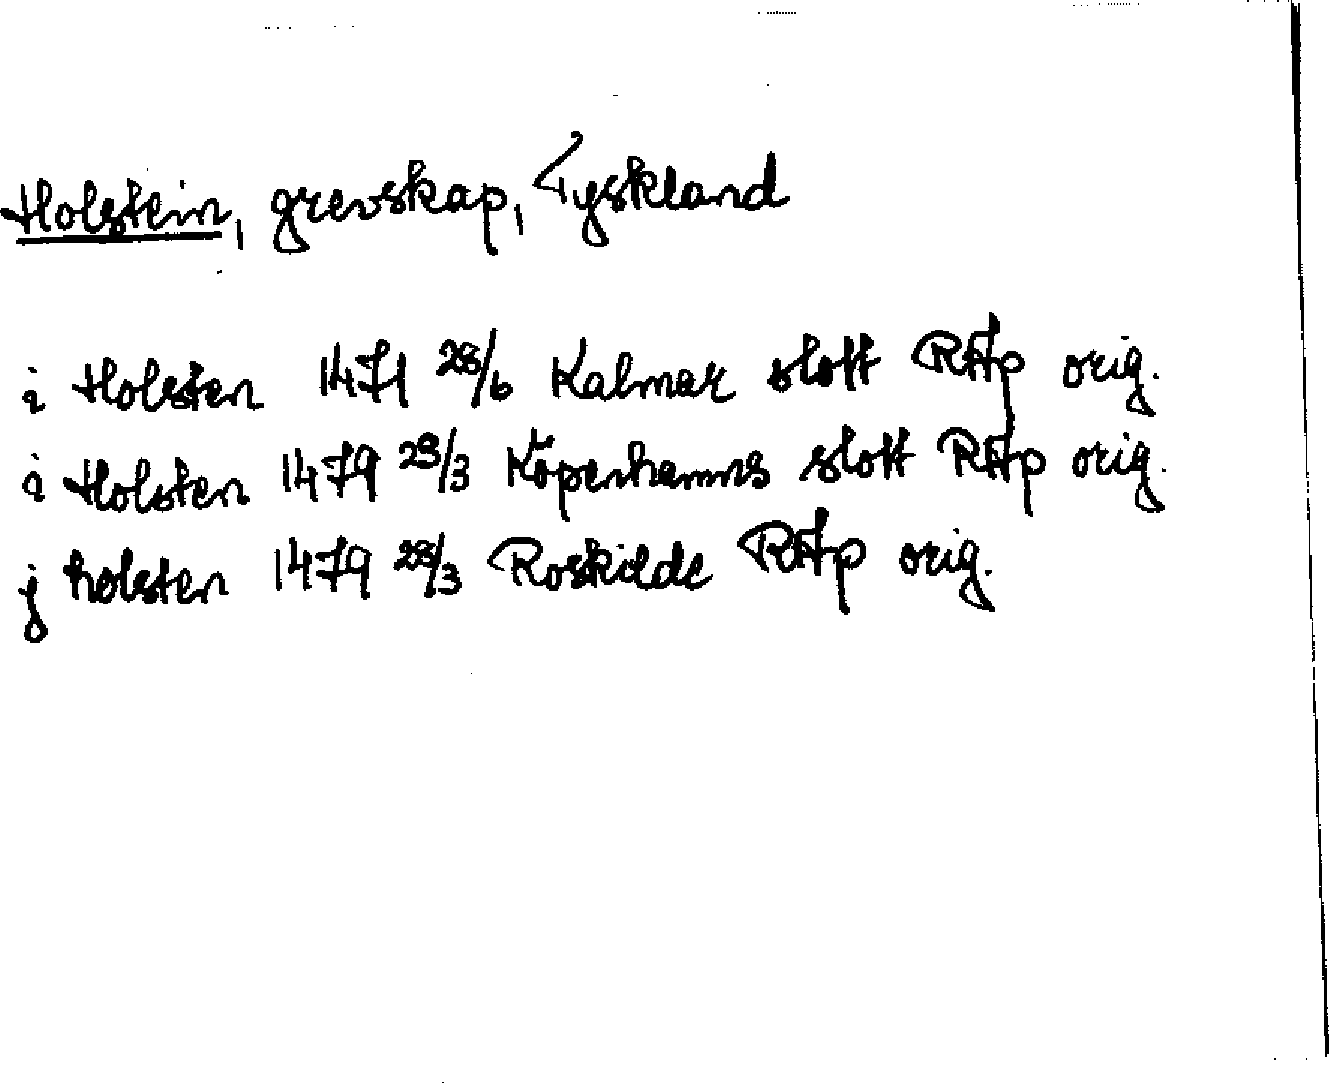 Holstein, grevskap, Tyskland
i Holsten 1471 28/6 Kalmar slott RAp orig.
i Holsten 1479 23/3 Köpenhamns slott RAp orig.
j holsten 1479 28/3 Roskilde RAp orig.